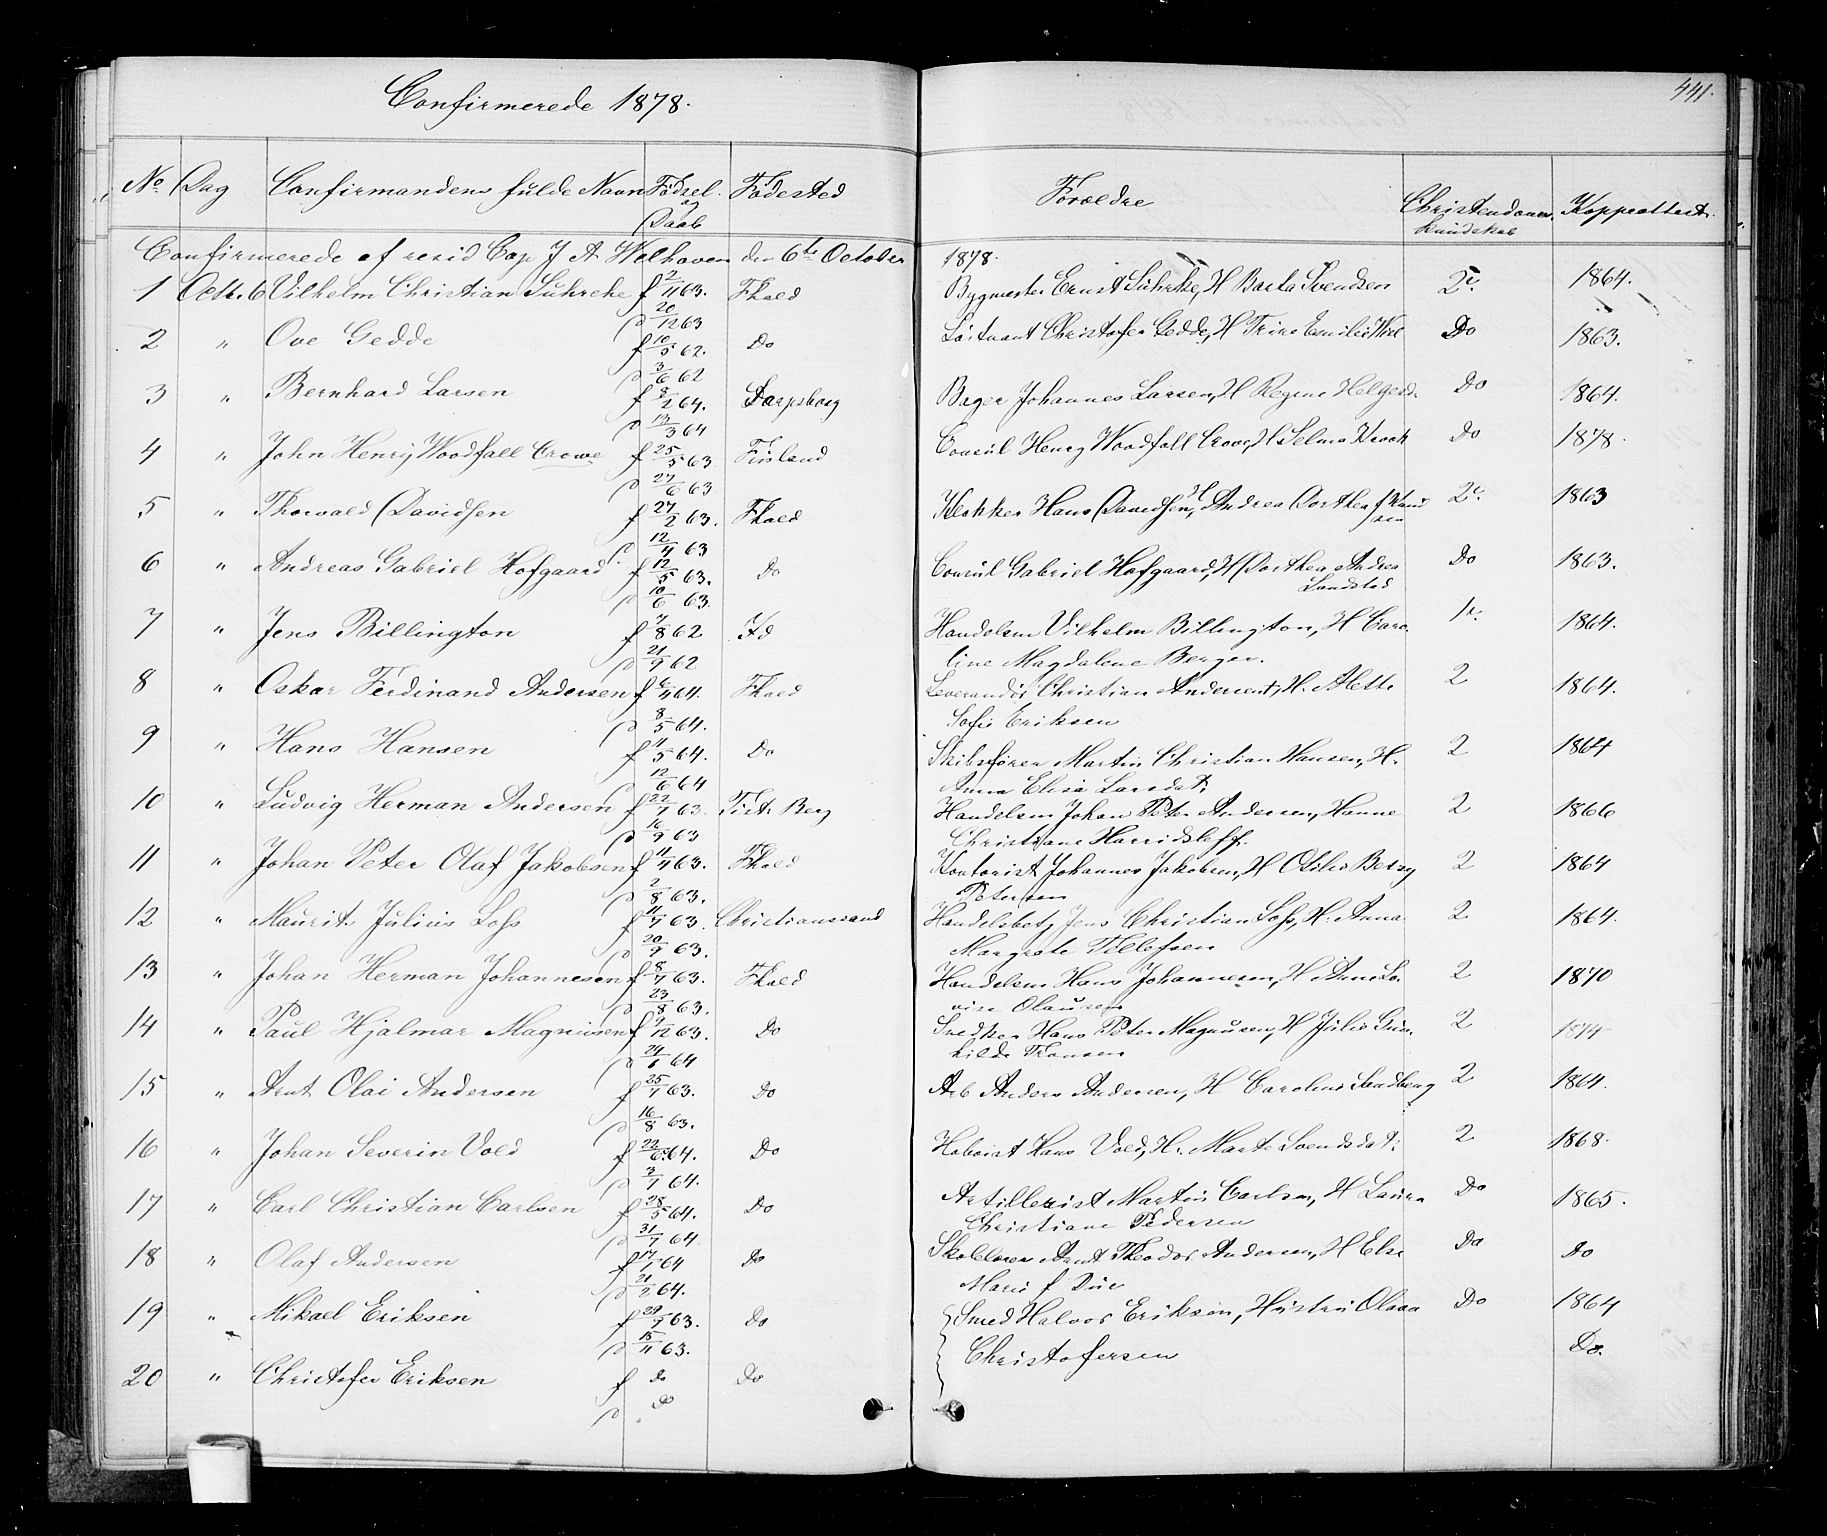 Confirmerede 1878.
441.
No Dag Confirmandens fulde Navn Fødsel og Daab Fødested Forældre Christendoms Kundskab Koppeattest.
Confirmerede af resid Cap J A Welhaven den 6te October 1878.
1 Octb. 6 Vilhelm Christian Suhrcke f 2/11 63. Fhald Bygmester Ernst Suhrke, H Berta Svendsen 2. 1864.
D 20/12 63
2 " Ove Gedde f 10/5 62. Do Christofer Gedde, H Trine Emilie Do 1863.
D 3/6 62
3 " Bernhard Larsen f 8/2 64. Sarpsborg Bager Johannes Larsen, H Regine Helgesd. Do 1864.
D 13/3 64
4 " John Henry Woodfall Crowe f 25/5 63. Finland Consul Henry Woodfall Crowe, H Selma Do 1878.
D 27/6 63
5 " Thorvald Davidsen f 27/2 63. Fhald Klokker Hans Davidsen, H Andrea Dorthea f Knud
sen 2. 1863
D 12/4 63
6 " Andreas Gabriel Hofgaard f 12/5 63. Do Consul Gabriel Hofgaard, H Dorthea Andrea
Landstad Do 1863.
D 10/6 63.
7 " Jens Billington f 7/8 62 Id Handelsm Vilhelm Billington, H Caro- 1. 1864.
D 21/9 62 line Magdalene Berger.
8 " Oskar Ferdinand Andersen f 6/4 64. Fhald Leverandør Christian Andersen, H. Alette 2 1864.
D 8/5 64. Sofie Eriksen
9 " Hans Hansen f 11/5 64. Do Skibsfører Martin Christian Hansen, H. 2 1864
D 12/6 64 Anna Elisa Larsdat.
10 " Ludvig Herman Andersen f 22/7 63. Tist. Berg Handelsm Johan Peter Andersen, Hanne 2 1866
D 16/9 63 Christiane Harridsleff.
11 " Johan Peter Olaf Jakobsen f 11/4 63. Fhald Kontorist Johannes Jakobsen, H Otilie Betzy 2 1864
D 2/8 63. Petersen
12 " Maurits Julius Loss f 11/7 63. Christianssand Handelsbetj Jens Christian Loss, H. Anna 2 1864.
D 20/9 63. Margrete Tellefsen
13 " Johan Herman Johannesen f 8/7 63. Fhald Handelsm Hans Johannesen, H Anne Lo- 2 1870
D 23/8 63. vise Olausen
14 " Paul Hjalmar Magnusen f 9/12 63. Do Snedker Hans Peter Magnusen, H Julie Gun- 2 1874
D 24/1 64 hilde Fransen
15 " Arnt Olai Andersen f 25/7 63. Do Arb Anders Andersen, H Caroline Sandberg 2 1864.
D 16/8 63.
16 " Johan Severin Vold f 22/6 64. Do Hoboist Hans Vold, H. Marte Svendsdat. 2 1868.
D 3/7 64.
17 " Carl Christian Carlsen f 28/5 64. Do Artillerist Martin Carlsen, H Laura Do 1865.
D 31/7 64 Christiane Pedersen
18 " Olaf Andersen f 17/1 64 Do Skolelærer Arnt Theodor Andersen, H Else Do Do
D 21/2 64. Marie f Due
19 " Mikael Eriksen f 29/9 63. Do Smed Halvor Eriksen, Hustru Olava Do 1864
D 15/11 63. Christofersen Do.
20 " Christofer Eriksen f Do Do
D Do